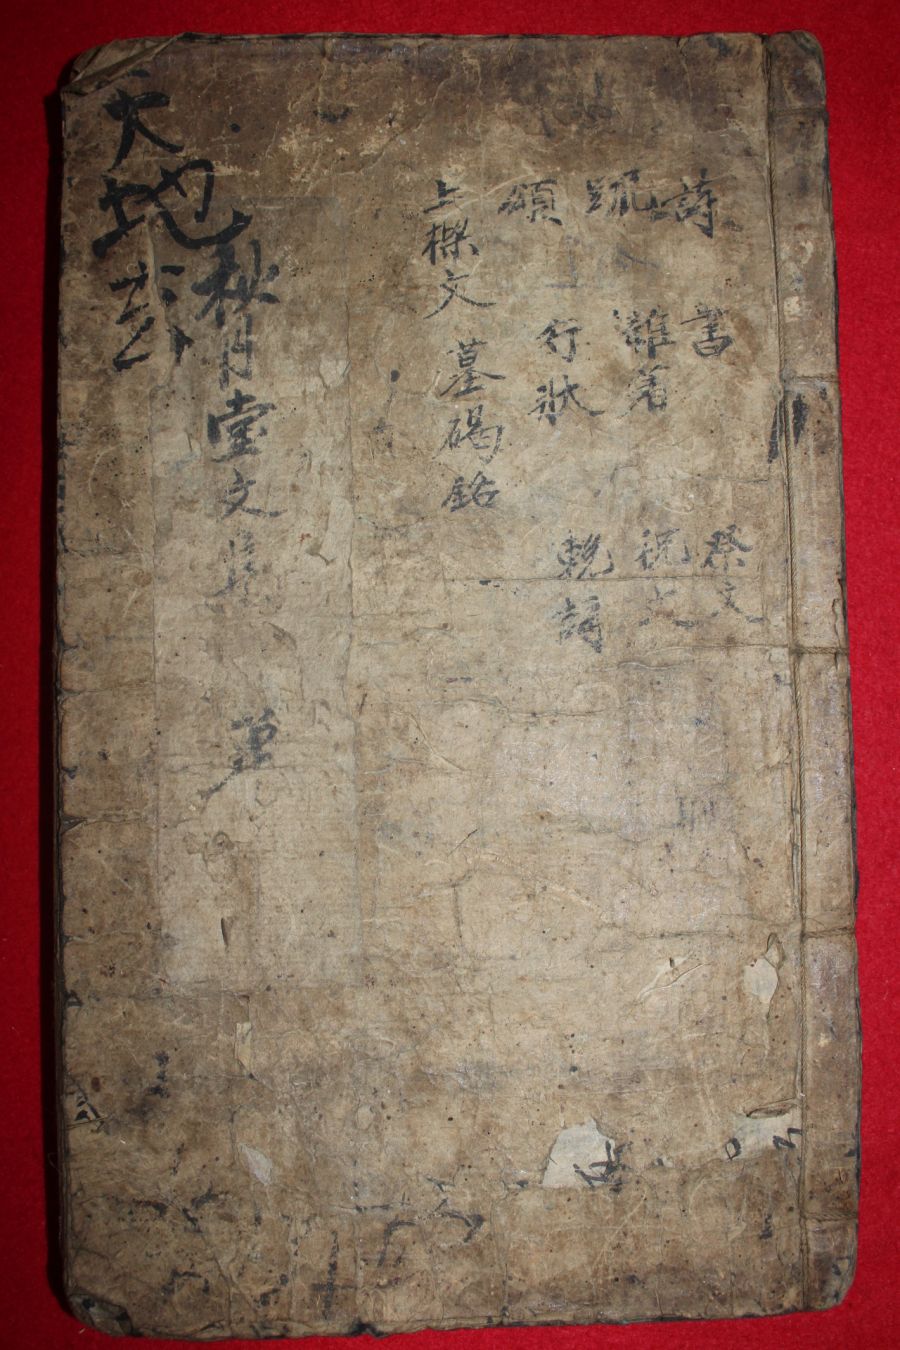 詩 書 祭文
疏 雜著 祝文
頌 行狀 輓詞
上樑文 墓碣銘
秋月堂文集
天地